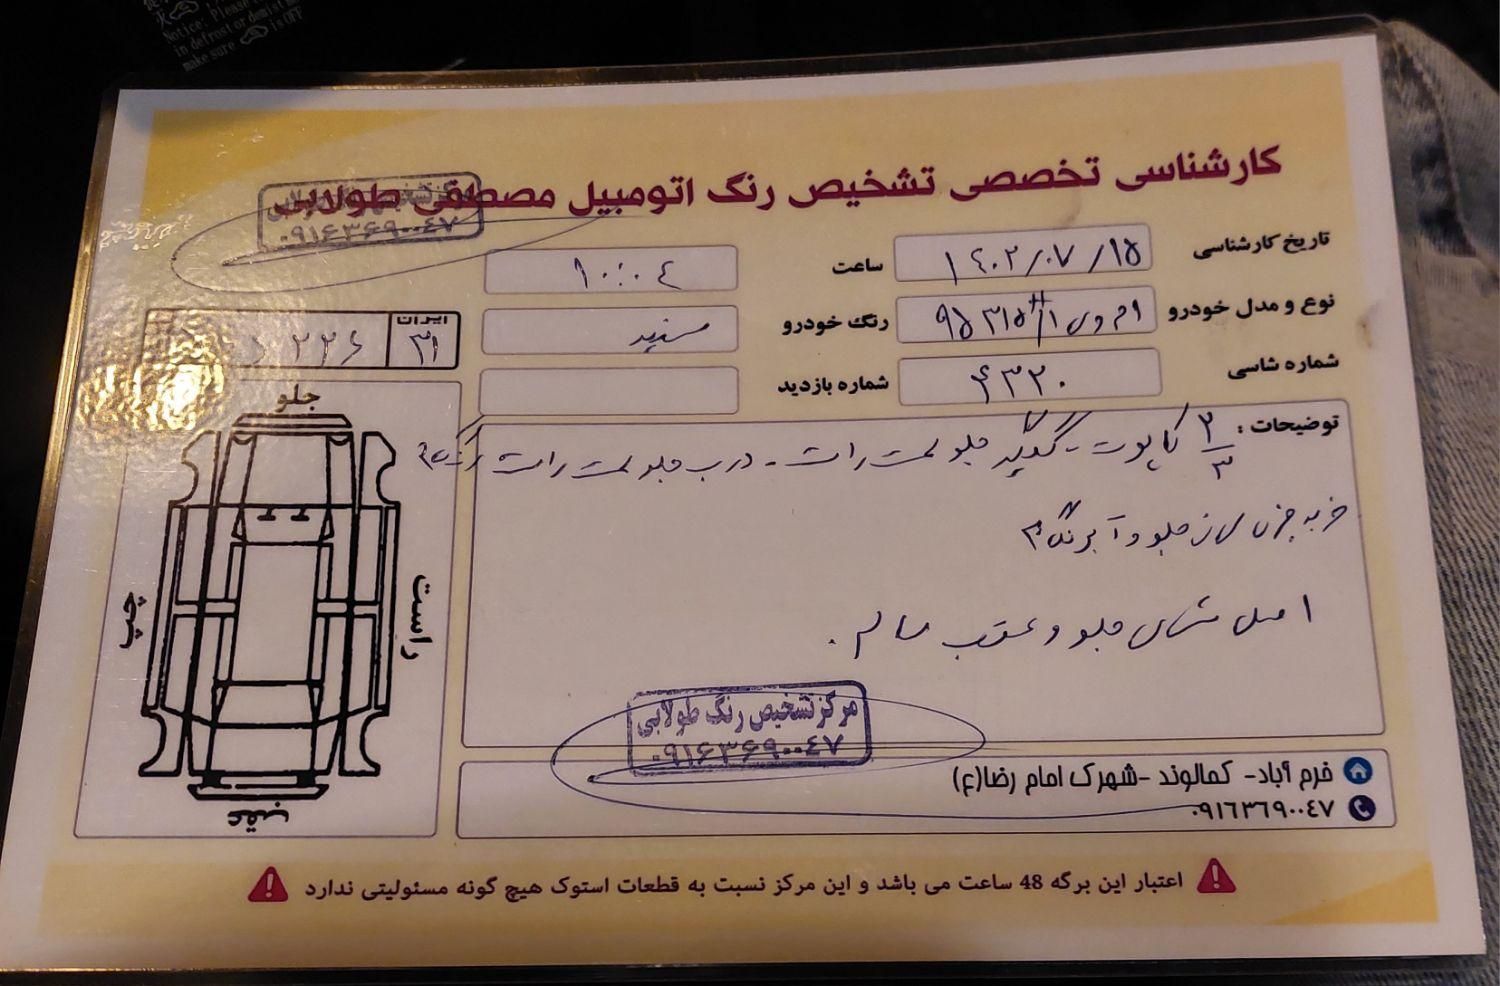 Notice: Please
in defrost or demist
make sure is OFF
کارشناسی تخصصی تشخیص رنگ اتومبیل مصطفی طولابی
۰۹۱۶۳۶۹۰۰۴۷
تاریخ کارشناسی ۱۴۰۲/۰۷/۱۵ ساعت ۱۰:۰۴
نوع و مدل خودرو ام وی ام ۳۱۵H ۹۵ رنگ خودرو سفید
ایران ۳۱
شماره شاسی ۴۳۲۰ شماره بازدید
توضیحات : ۲/۳ کاپوت - گلگیر جلو سمت راست - درب جلو سمت راست رنگ
ضربه جزئی جلو و آبرنگ
اصل شاسی جلو و عقب سالم .
جلو
راست
چپ
عقب
مرکز تشخیص رنگ طولابی
۰۹۱۶۳۶۹۰۰۴۷
خرم آباد- کمالوند -شهرک امام رضا(ع)
۰۹۱۶۳۶۹۰۰۴۷
اعتبار این برگه 48 ساعت می باشد و این مرکز نسبت به قطعات استوک هیچ گونه مسئولیتی ندارد